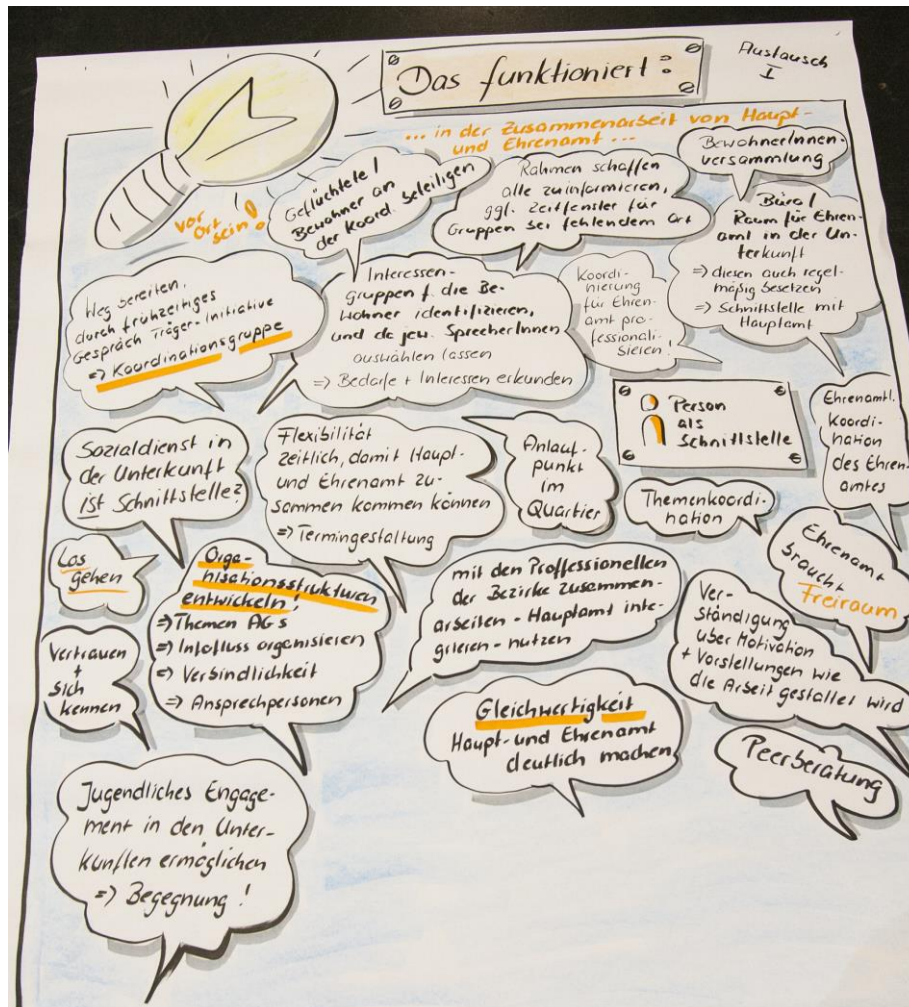 Das funktioniert:
Austausch
I
... in der Zusammenarbeit von Haupt-
und Ehrenamt ...
vor
Ort
sein!
Geflüchtete /
Bewohner an
der Koord. beteiligen
Rahmen schaffen
alle zu informieren,
ggf. Zeitfenster für
Gruppen bei fehlendem Ort
BewohnerInnen-
versammlung
Büro /
Raum für Ehren-
amt in der Un-
terkunft
=> diesen auch regel-
mäßig besetzen
=> Schnittstelle mit
Hauptamt
Weg bereiten,
durch frühzeitiges
Gespräch Träger-Initiative
=> Koordinationsgruppe
Interessen-
gruppen f. die Be-
wohner identifizieren,
und de jew. SprecherInnen
auswählen lassen
=> Bedarfe + Interessen erkunden
Koordi-
nierung
für Ehren-
amt pro-
fessionali-
sieren!
Person
als
Schnittstelle
Ehrenamtl.
Koordi-
nation
des Ehren-
amtes
Sozialdienst in
der Unterkunft
ist Schnittstelle?
Flexibilität
zeitlich, damit Haupt-
und Ehrenamt zu-
sammen kommen können
=> Termingestaltung
Anlauf-
punkt
im
Quartier
Themenkoordi-
nation
Ehrenamt
braucht
Freiraum
Los
gehen
Orga-
nisationsstrukturen
entwickeln!
=> Themen AGs
=> Infofluss organisieren
=> Verbindlichkeit
=> Ansprechpersonen
mit den Proffessionellen
der Bezirke zusammen-
arbeiten - Hauptamt inte-
grieren - nutzen
Ver-
ständigung
über Motivation
+ Vorstellungen wie
die Arbeit gestaltet wird
Vertrauen
+
sich
kennen
Gleichwertigkeit
Haupt- und Ehrenamt
deutlich machen
Peerberatung
Jugendliches Engage-
ment in den Unter-
künften ermöglichen
=> Begegnung!